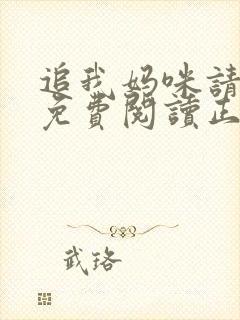 追我妈咪請
免費閱讀正
武珞